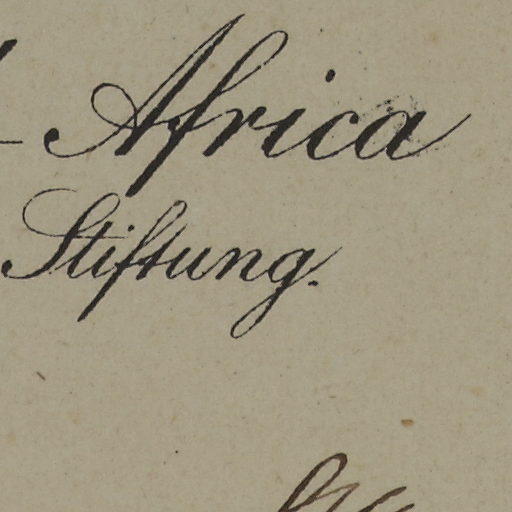 - Africa
Stiftung.